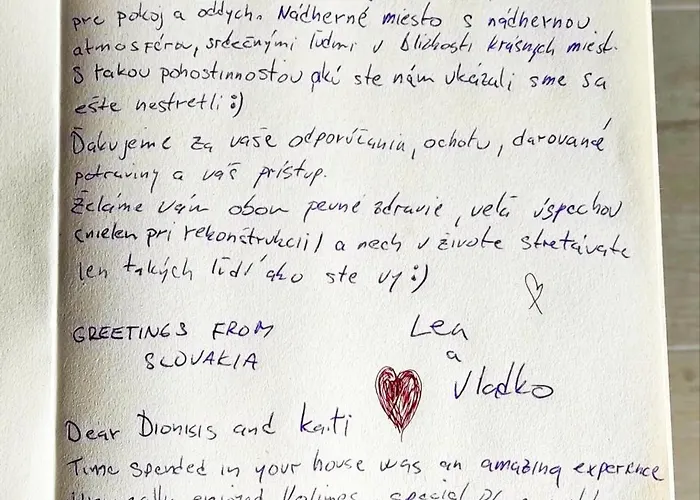 pre pokoj a oddych. Nádherné miesto s nádhernou
atmosférou, srdečnými ľuďmi v blízkosti krásnych miest.
S takou pohostinnosťou akú ste nám ukázali sme sa
ešte nestretli :)
Ďakujeme za vaše odporúčania, ochotu, darované
potraviny a váš prístup.
Želáme vám obom pevné zdravie, veľa úspechov
(nielen pri rekonštrukcii) a nech v živote stretávate
len takých ľudí ako ste vy :)
GREETINGS FROM
SLOVAKIA
Lea
a
Vladko
Dear Dionisis and Kaiti
Time spended in your house was an amazing experience
enjoyed special